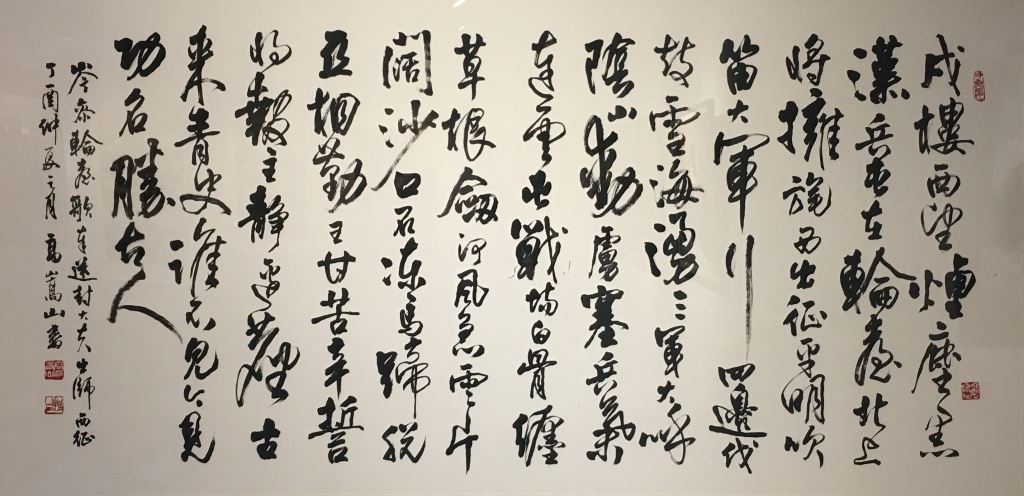 戍樓西望煙塵黑
漢兵屯在輪臺北上
將擁旄西出征平明吹
笛大軍行四邊伐
鼓雪海湧三軍大呼
陰山動虜塞兵氣
連雲屯戰場白骨纏
草根劍河風急雲片
闊沙口石凍馬蹄脫
亞相勤王甘苦辛誓
將報主靜邊塵古
來青史誰不見今見
功名勝古人
岑參輪臺歌奉送封大夫出師西征
丁酉仲夏之月 高嵩山書